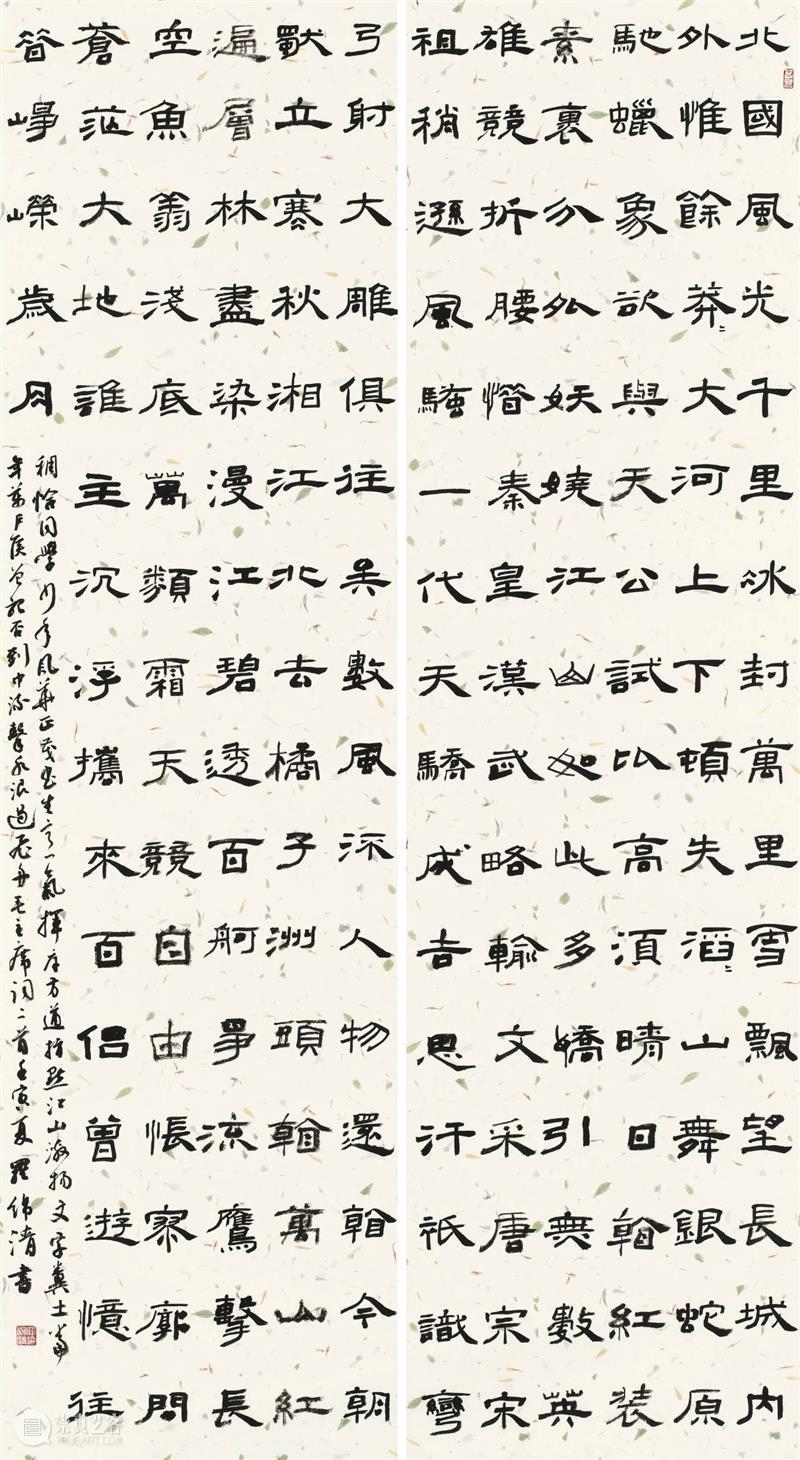 北國風光千里冰封萬里雪飄望長城內
外惟餘莽々大河上下頓失滔々山舞銀蛇原
馳蠟象欲與天公試比高須晴日看紅裝
素裹分外妖嬈江山如此多嬌引無數英
雄競折腰惜秦皇漢武略輸文采唐宗宋
祖稍遜風騷一代天驕成吉思汗祇識彎
弓射大雕俱往矣數風流人物還看今朝
獨立寒秋湘江北去橘子洲頭看萬山紅
遍層林盡染漫江碧透百舸爭流鷹擊長
空魚翔淺底萬類霜天競自由悵寥廓問
蒼茫大地誰主沉浮攜來百侶曾遊憶往
昔崢嶸歲月
稠恰同學少年風華正茂書生意氣揮斥方遒指點江山激揚文字糞土當
年萬戶侯曾記否到中流擊水浪遏飛舟毛主席詞二首壬寅夏羅清書
崇真艺客
TRUEART.COM